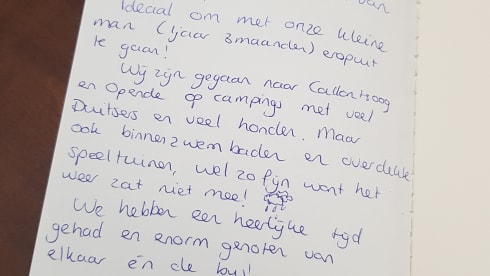 van
Ideaal om met onze kleine
man (1 jaar 3 maanden) eropuit
te gaan!
Wij zijn gegaan naar Callantsoog
en Opende op campings met veel
Duitsers en veel honden. Maar
ook binnenzwembaden en overdekte
speeltuinen, wel zo fijn want het
weer zat niet mee!
We hebben een heerlijke tijd
gehad en enorm genoten van
elkaar én de bus!